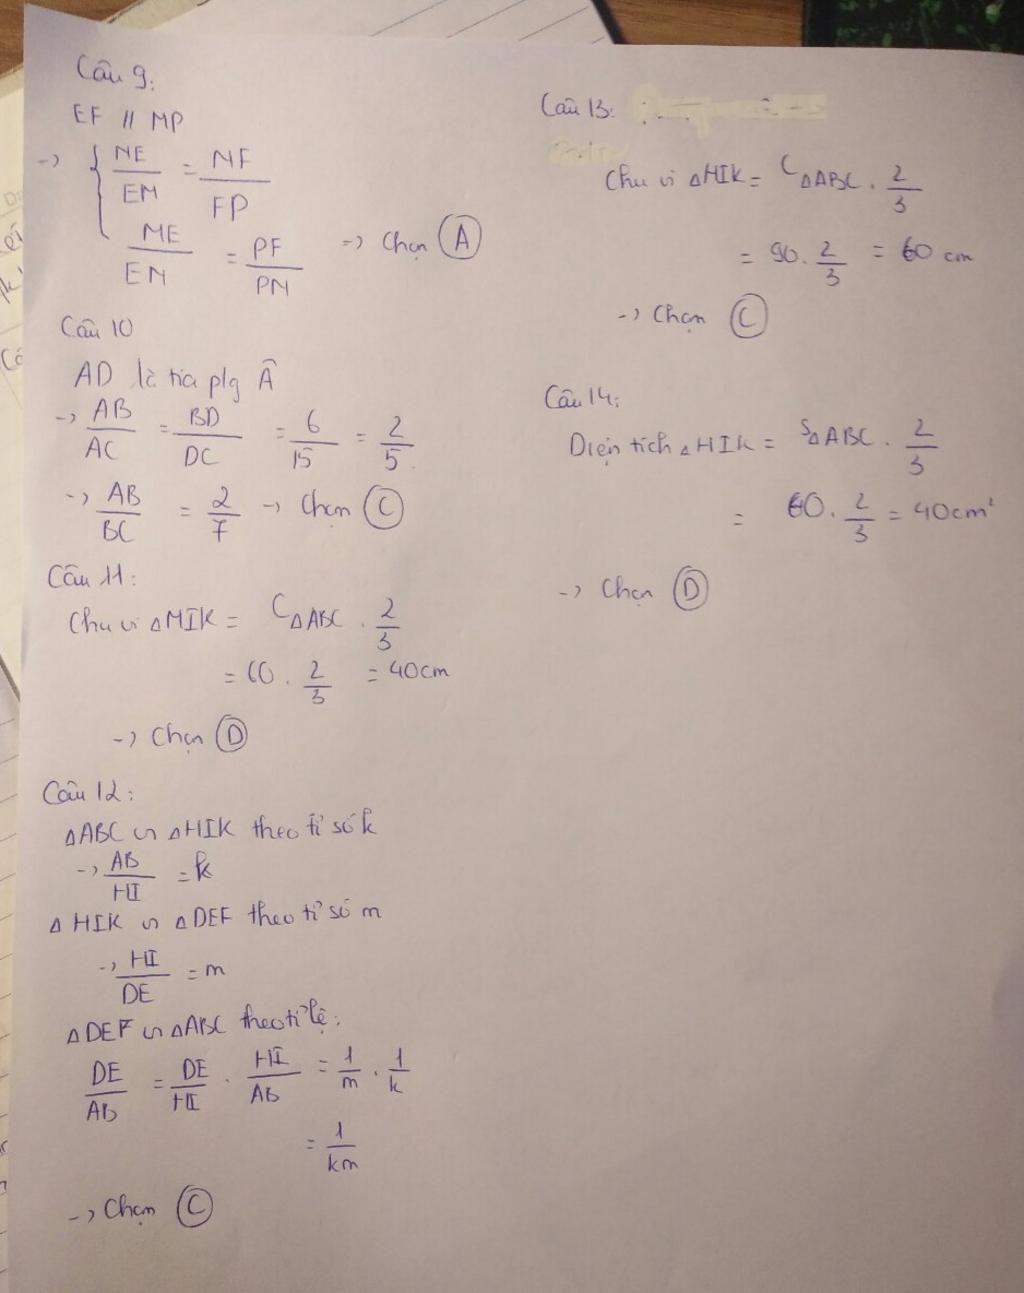 Câu 9:
EF // MP
-> { NE/EM = NF/FP
ME/EN = PF/PN => Chọn (A)
Câu 10
AD là tia plg Â
-> AB/AC = BD/DC = 6/15 = 2/5
-> AB/BC = 2/7 -> Chọn (C)
Câu 11:
Chu vi ΔMIK = CΔABC . 2/3
= 60 . 2/3 = 40cm
-> Chọn (D)
Câu 12:
ΔABC ∽ ΔHIK theo tỉ số k
-> AB/HI = k
Δ HIK ∽ ΔDEF theo tỉ số m
-> HI/DE = m
ΔDEF ∽ ΔABC theo tỉ lệ:
DE/AB = DE/HI . HI/AB = 1/m . 1/k
= 1/km
-> Chọn (C)
Câu 13:
Chu vi ΔHIK = CΔABC . 2/3
= 90. 2/3 = 60 cm
-> Chọn (C)
Câu 14:
Diện tích ΔHIK = SΔABC . 2/3
= 60. 2/3 = 40cm²
-> Chọn (D)